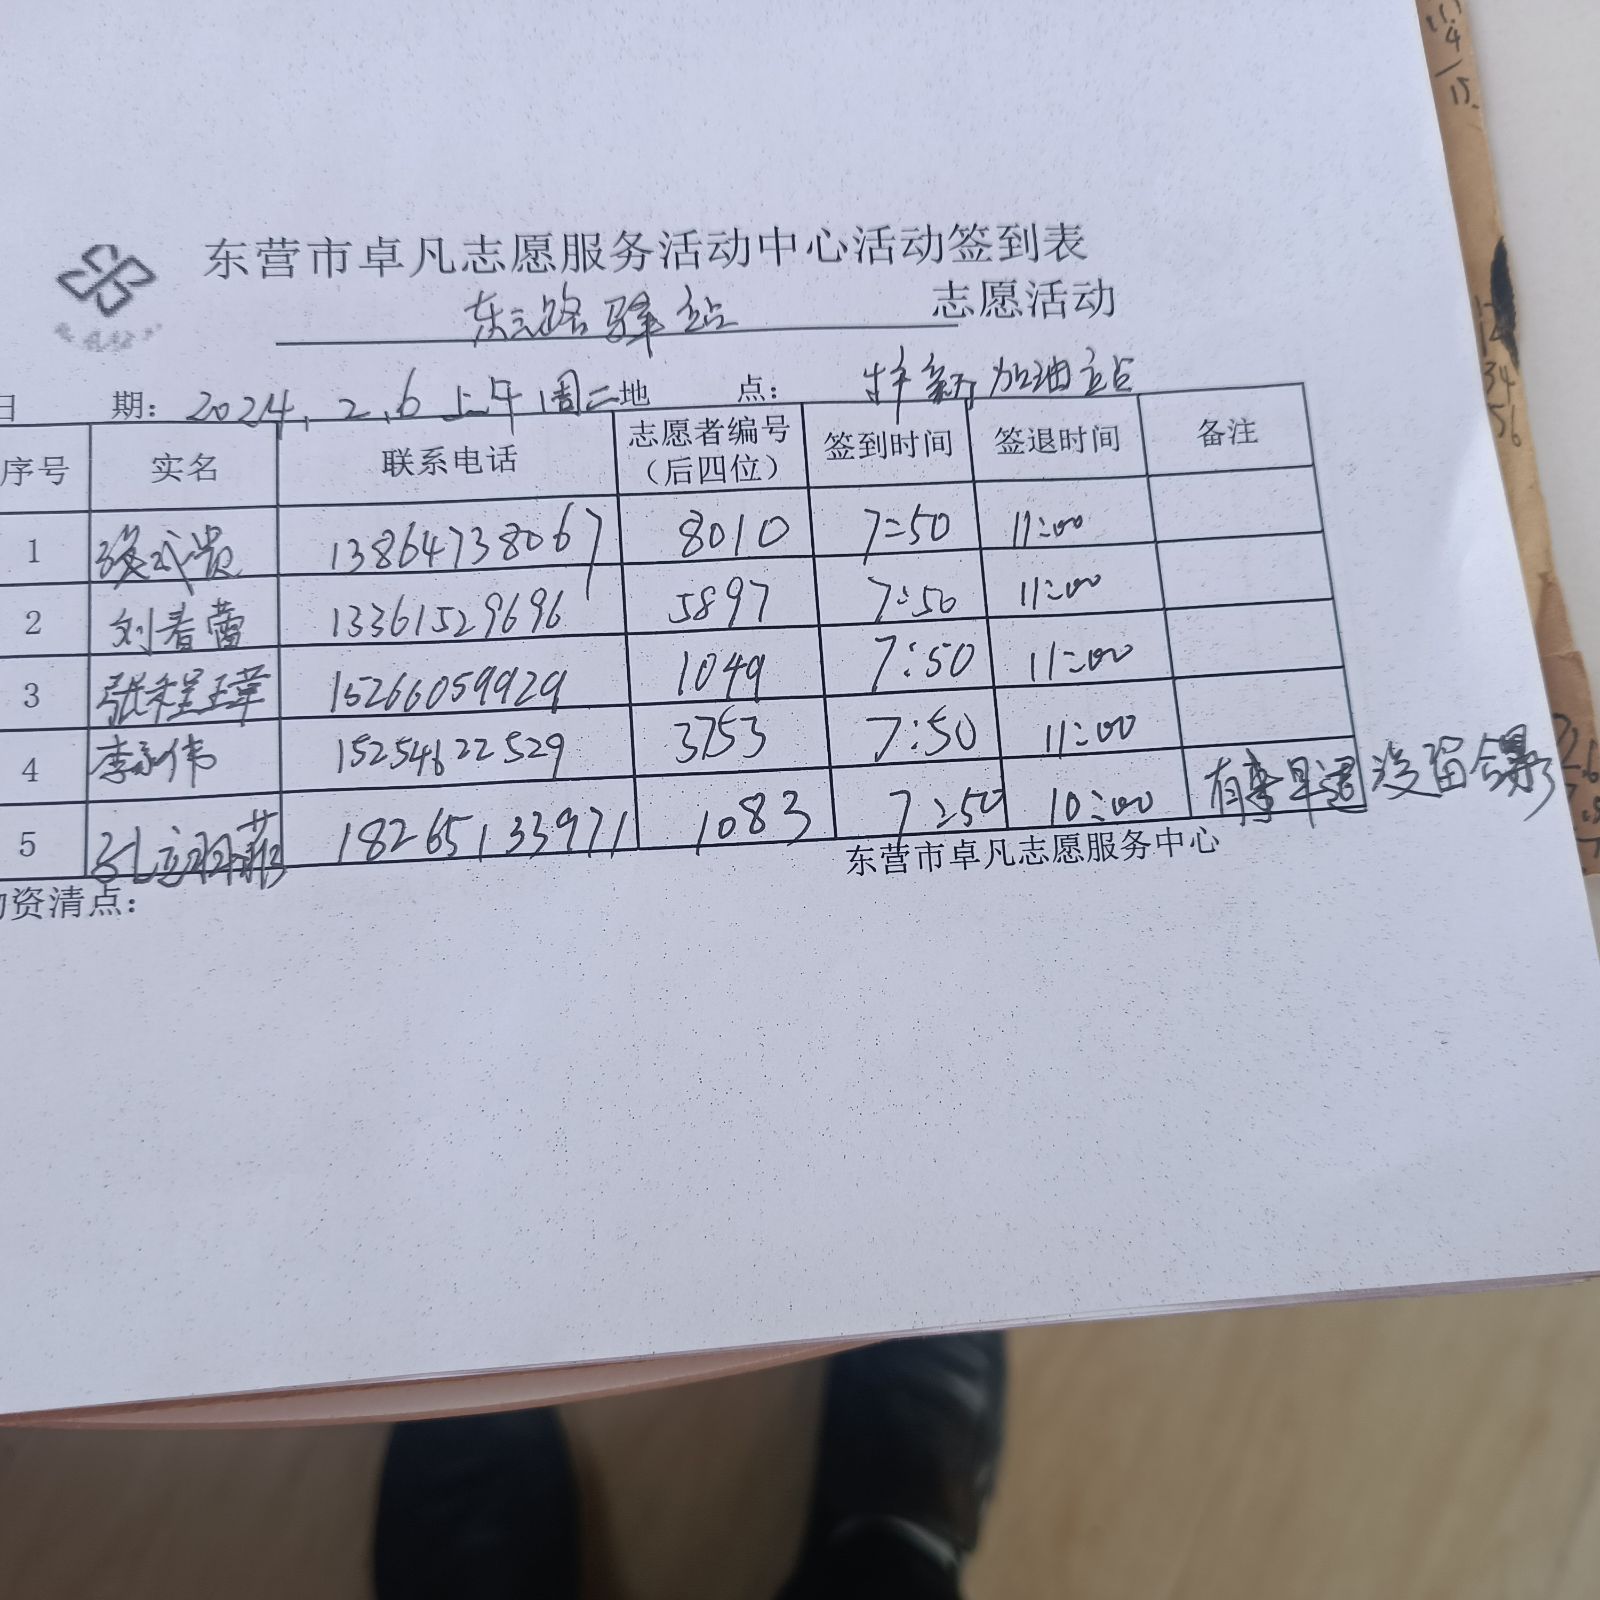 东营市卓凡志愿服务活动中心活动签到表
东三路驿站 志愿活动
日 期：2024.2.6上午周二 地 点： 加油站
序号 实名 联系电话 志愿者编号（后四位） 签到时间 签退时间 备注
1 13864738067 8010 7:50 11:00
2 刘春蕾 13361529696 5897 7:50 11:00
3 张程玮 15266059929 1049 7:50 11:00
4 李永伟 15254622529 3753 7:50 11:00
5 孔 18265133971 1083 7:50 10:00 有事早退没留合影
东营市卓凡志愿服务中心
资清点：